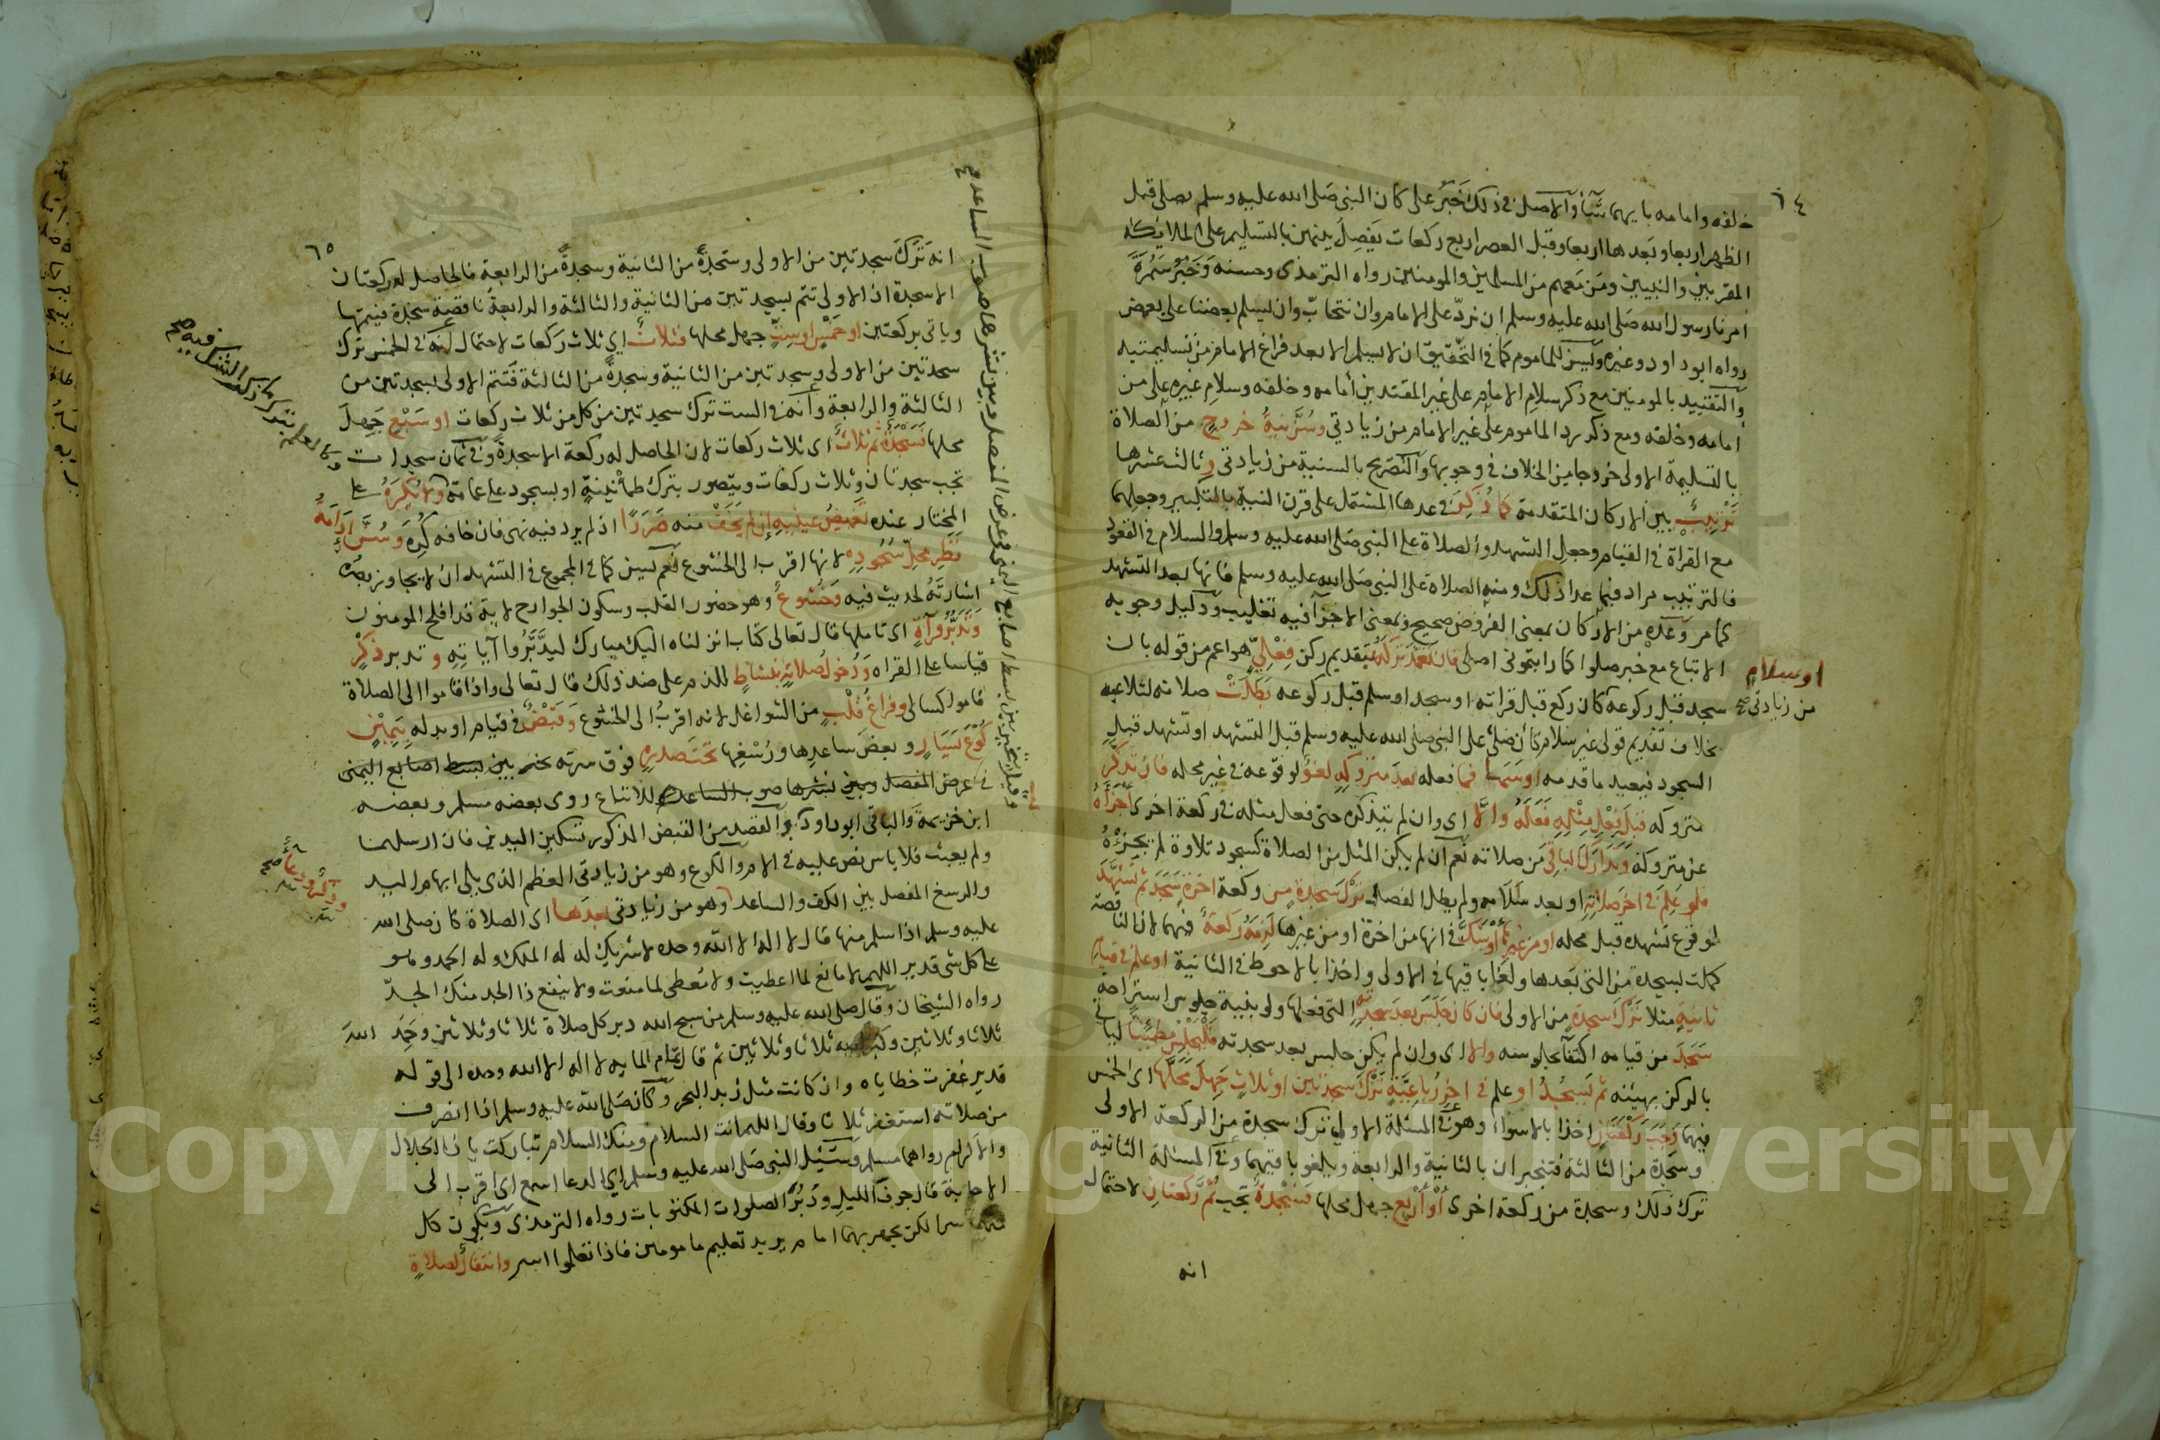 ٦٤
خلفه وامامه بايهما شآ والاصل في ذلك خبر على كان النبى صلى الله عليه وسلم يصلى قبل
الظهر اربعا وبعدها اربعا وقبل العصر اربع ركعات يفصل بينهن بالتسليم على الملايكة
المقربين والنبيين ومن معهم من المسلمين والمومنين رواه الترمذى وحسنه وخبر سمرة
امرنا رسول الله صلى الله عليه وسلم ان نرد على الامام وان نتحاب وان يسلم بعضنا على بعض
رواه ابو داود وغيره ويسن للماموم كما في التحقيق ان لا يسلم الا بعد فراغ الامام من تسليمتيه
والتقييد بالمومنين مع ذكر سلام الامام على غير المقتدين أمامه وخلفه وسلام غيره على من
امامه وخلفه ومع ذكر رد الماموم على غير الامام من زيادتي وسن نية خروج من الصلاة
بالتسليمة الاولى خروجا من الخلاف في وجوبها والتصريح بالسنية من زيادتى وثالث عشرها
ترتيب بين الاركان المتقدمة كما ذكر في عدها المشتمل على قرن النية بالتكبير وجعلهما
مع القرآة في القيام وجعل التشهد والصلاة على النبى صلى الله عليه وسلم والسلام في القعود
فالترتيب مراد فيما عدا ذلك ومنه الصلاة على النبى صلى الله عليه وسلم فانها بعد التشهد
كما مر وعده من الاركان بمعنى الفروض صحيح وبمعنى الاجزآ فيه تغليب ودليل وجوبه
الاتباع مع خبر صلوا كما رايتموني اصلى فان تعمد تركه بتقديم ركن فعلي هو اعم من قوله بان
او سلام
من زيادتي صح
سجد قبل ركوعه كان ركع قبل قراته او سجد او سلم قبل ركوعه بطلت صلاته لتلاعبه
بخلاف تقديم قولى غير سلام كان صلى على النبى صلى الله عليه وسلم قبل التشهد او تشهد قبل
السجود فيعيد ما قدمه او سها فما فعله بعد متروكه لغو لوقوعه في غير محله فان تذكر
متروكه قبل فعل مثله فعله والا اى وان لم يتذكره حتى فعل مثله في ركعة اخرى اجزأه
عن متروكه وتدارك الباقي من صلاته نعم ان لم يكن المثل من الصلاة كسجود تلاوة لم يجزئه
فلو علم في اخر صلاته او بعد سلامه ولم يطل الفصل ترك سجدة من ركعة اخرة سجد ثم تشهد
لوقوع تشهده قبل محله او من غيرها أو شك في انها من اخرة او من غيرها لزمه ركعة فيهما لان الناقصة
كملت بسجدة من التى بعدها ولغا باقيها في الاولى واخذا بالاحوط في الثانية او علم في قيام
ثانية مثلا ترك سجدة من الاولى فان كان جلس بعد سجدته التى فعلها ولو بنية جلوس استراحة
سجد من قيامه اكتفآ بجلوسه والا اى وان لم يكن جلس بعد سجدته فليجلس مطمئنا لياتي
بالركن بهيئته ثم يسجد او علم في اخر رباعية ترك سجدتين او ثلاث جهل محلها اى الخمس
فيهما وجب ركعتان اخذا بالاسوا وهو في المسئلة الاولى ترك سجدة من الركعة الاولى
وسجدة من الثالثة فتنجبران بالثانية والرابعة ويلغو باقيهما وفي المسئلة الثانية
ترك ذلك وسجدة من ركعة اخرى أو أربع جهل محلها فسجدة تجب ثم ركعتان لاحتمال
انه
٦٥
انه ترك سجدتين من الاولى وسجدة من الثانية وسجدة من الرابعة فالحاصل له ركعتان
الا سجدة اذ الاولى تتم بسجدتين من الثانية والثالثة والرابعة ناقصة سجدة فيتمها
وياتى بركعتين او خمس او ست جهل محلها فثلاث اي ثلاث ركعات لاحتمال انه في الخمس ترك
سجدتين من الاولى وسجدتين من الثانية وسجدة من الثالثة فتتم الاولى بسجدتين من
الثالثة والرابعة وأنه في الست ترك سجدتين من كل من ثلاث ركعات او سبع جهل
محلها فسجدة ثم ثلاث اى ثلاث ركعات لان الحاصل له ركعة الا سجدة وفي ثمان سجدات
تجب سجدتان وثلاث ركعات ويتصور بترك طمأنينة او بسجود على عمامة ولا يكره على
المختار عنده تغميض عينيه إن لم يخف منه ضررا اذ لم يرد فيه نهى فان خافه كره وسن ادامة
نظر محل سجوده لانها اقرب الى الخشوع نعم يسن كما في المجموع في التشهد ان لا يجاوز بصره
اشارته لحديث فيه وخشوع وهو حضور القلب وسكون الجوارح لاية قد افلح المومنون
وتدبر قرآة اى تاملها قال تعالى كتاب انزلناه اليك مبارك ليدبروا آياته وتدبر ذكر
قياسا على القراه ودخول صلاة بنشاط للذم على ضد ذلك قال تعالى واذا قاموا الى الصلاة
قاموا كسالى وفراغ قلب من الشواغل لانه اقرب الى الخشوع وقبض في قيام او بدله بيمين
كوع يسار وبعض ساعدها ورسغها تحت صدره فوق سرته مخير بين بسط اصابع اليمنى
في عرض المفصل وبين نشرها صوب الساعد للاتباع روى بعضه مسلم وبعضه
ابن خزيمة والباقي ابو داود والقصد من القبض المذكور تسكين اليدين فان ارسلهما
ولم يعبث فلا باس نص عليه في الام والكوع وهو من زيادتى العظم الذى يلي ابهام اليد
والرسغ المفصل بين الكف والساعد وهو من زيادتى بعدها اى الصلاة كان صلى الله
عليه وسلم اذا سلم منها قال لا اله الا الله وحده لا شريك له له الملك وله الحمد وهو
على كل شى قدير اللهم لا مانع لما اعطيت ولا معطى لما منعت ولا ينفع ذا الجد منك الجد
رواه الشيخان وقال صلى الله عليه وسلم من سبح الله دبر كل صلاة ثلاثا وثلاثين وحمد الله
ثلاثا وثلاثين وكبر الله ثلاثا وثلاثين ثم قال تمام المايه لا اله الا الله وحده الى قوله
قدير غفرت خطاياه وان كانت مثل زبد البحر وكان صلى الله عليه وسلم اذا انصرف
من صلاته استغفر ثلاثا وقال اللهم انت السلام ومنك السلام تباركت ياذا الجلال
والاكرام رواهما مسلم وسئيل النبى صلى الله عليه وسلم اي الدعا اسمع اى اقرب الى
الاجابة قال جوف الليل ودبر الصلوات المكتوبات رواه الترمذى ويكون كل
منهما سرا لكن يجهر بهما امام يريد تعليم مامومين فاذا تعلموا اسر وانتقال لصلاة
وقيل يتخير بين بسط اصابع اليمنى في عرض المفصل وبين نشرها صوب الساعد صح
وذكر ودعا صح
Copyright © King Saud University